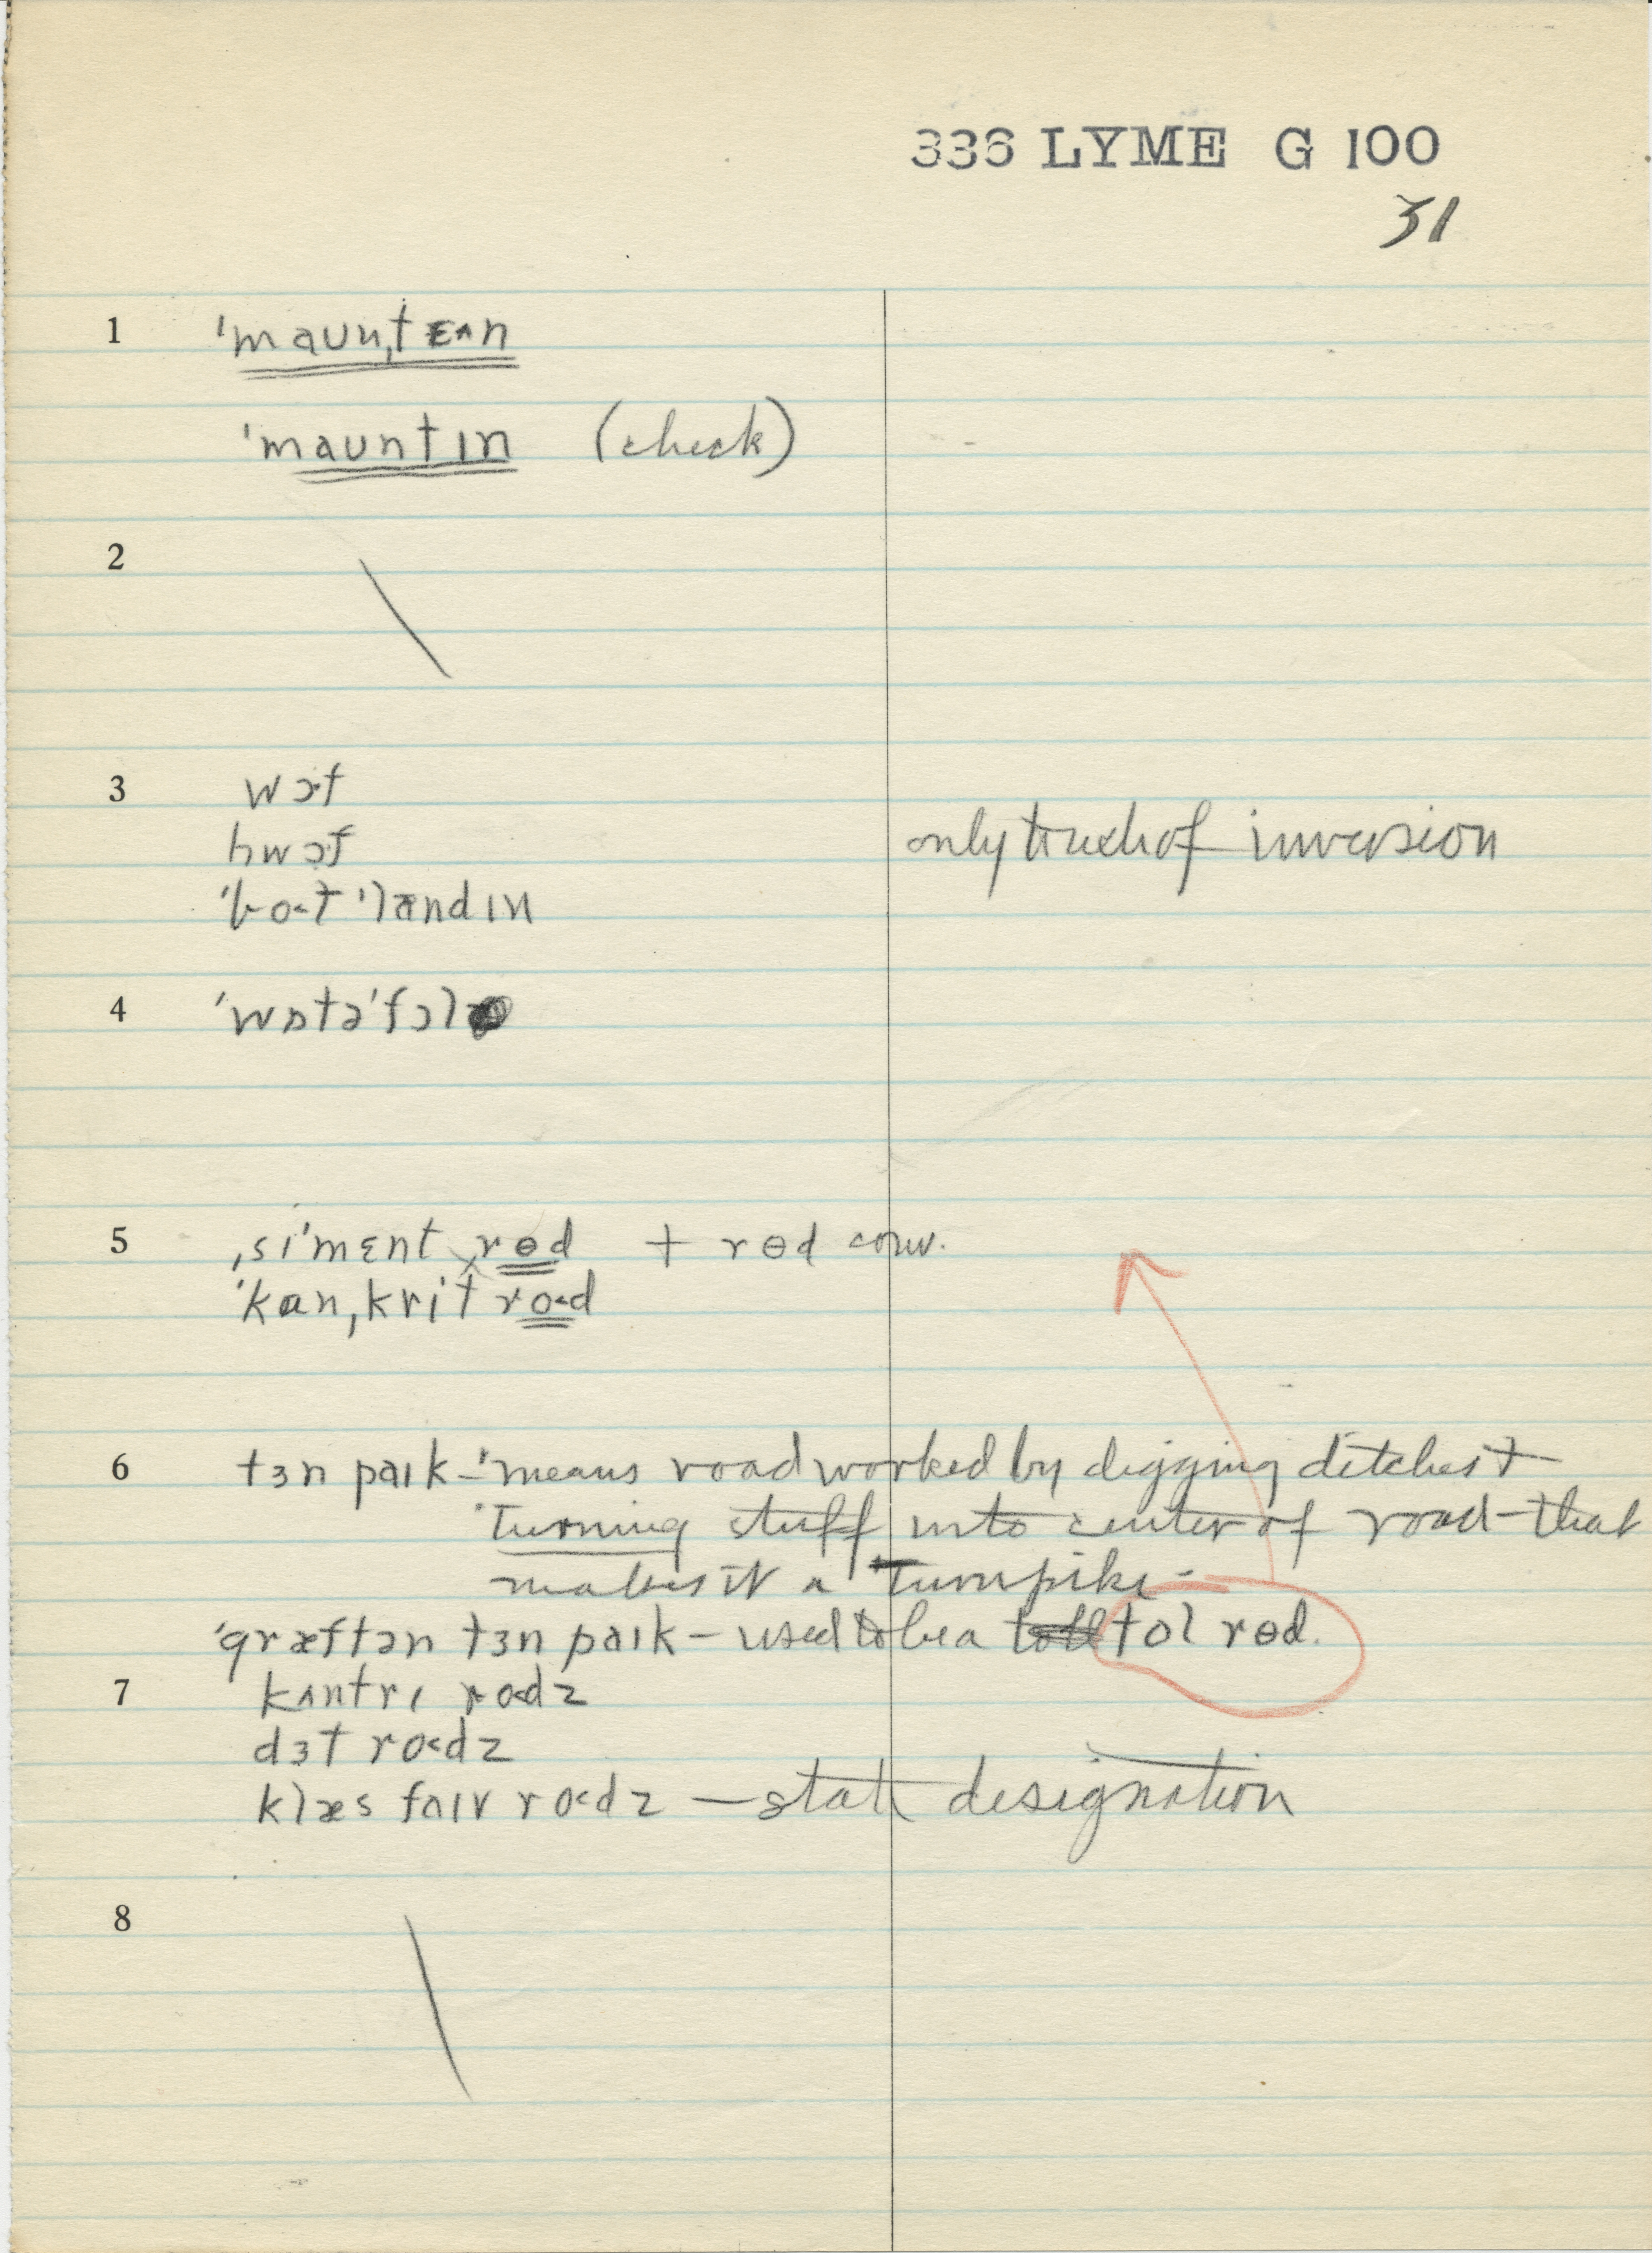 336 LYME G 100
31
1 ˈmaʊnˌtɛʌn
ˈmaʊntɪn (check)
2
3 wɔf
hwɔf only trace of inversion
ˈbo˂t ˈlændɪn
4 ˈwɒtəˈfɔl
5 ˌsɪˈmɛnt ˌrɵd + rɵd conv.
ˈkanˌkrit ro˂d
6 tɜn paɪk – means road worked by digging ditches +
turning stuff into center of road – that
makes it a turnpike –
ˈgræftən tɜn paɪk – used to be a tol rɵd.
7 kʌntrɪ ro˂dz
dɜt ro˂dz
klæs faɪv ro˂dz – state designation
8